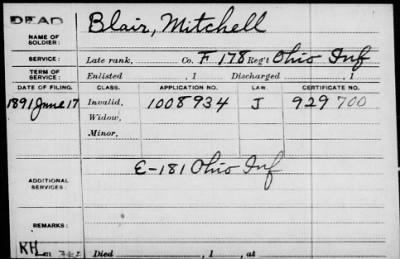 DEAD
NAME OF SOLDIER: Blair, Mitchell
SERVICE: Late rank, Co. F 178 Reg't Ohio Inf
TERM OF SERVICE: Enlisted , 1 Discharged , 1
DATE OF FILING. CLASS. APPLICATION NO. LAW. CERTIFICATE NO.
1891 June 17 Invalid, 1008934 J 929700
Widow,
Minor,
ADDITIONAL SERVICES: E-181 Ohio Inf
REMARKS:
KH
Died , 1 , at